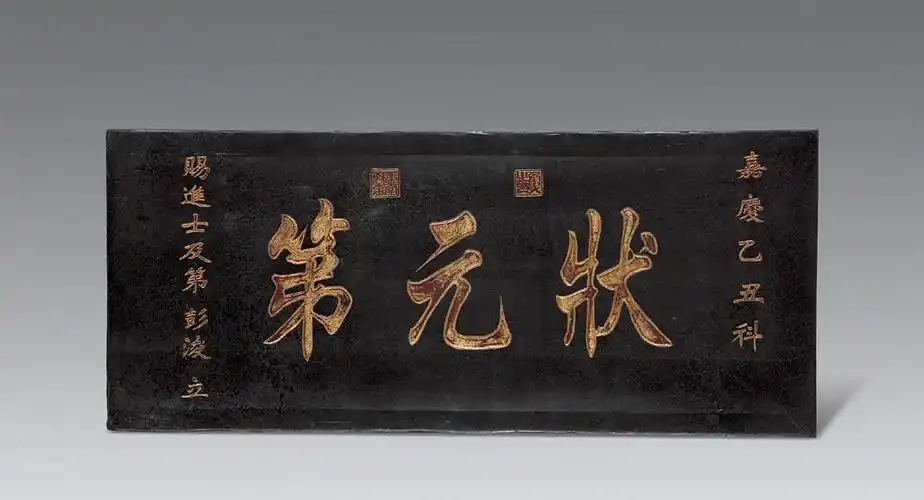 嘉慶乙丑科
狀元第
賜進士及第彭浚立